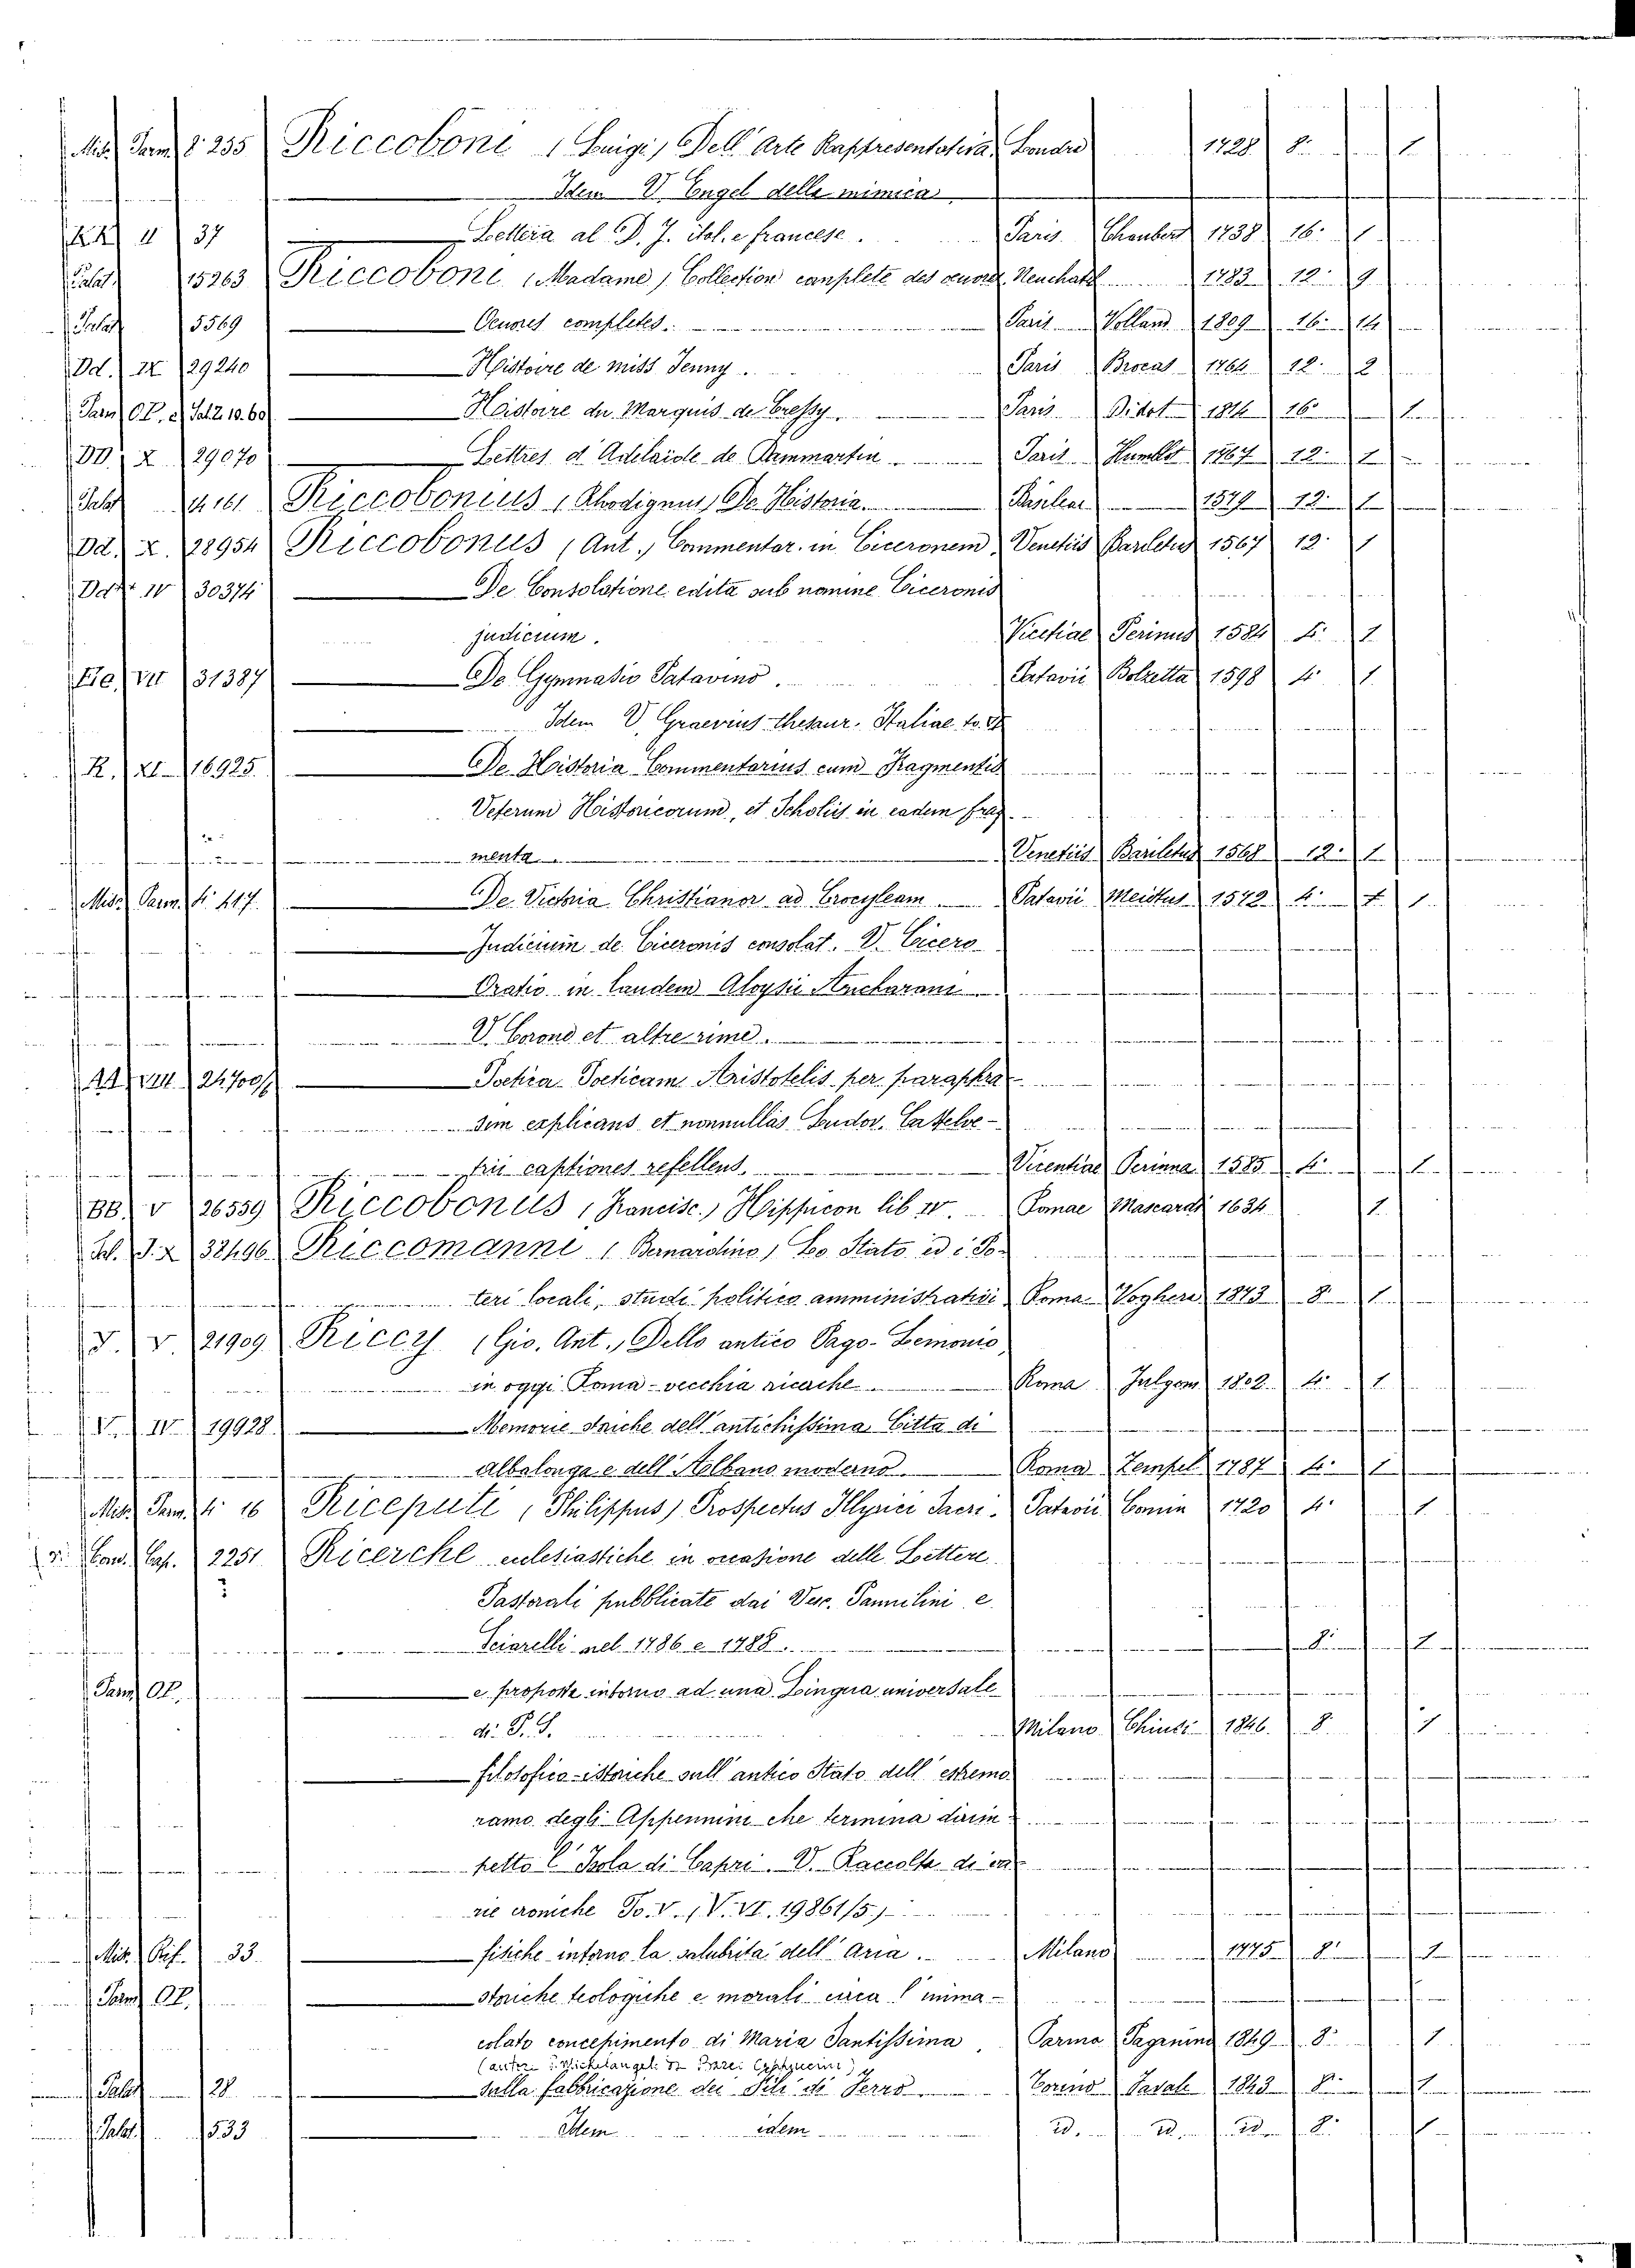 Misc. Parm. 8. 235 Riccoboni (Luigi) Dell' Arte Rappresentativa. Londra 1728 8. 1
Idem V. Engel della mimica
II 37 Lettera al D. J. ital. e francese. Paris Chaubert 1738 16. 1
Palat. 15263 Riccoboni (Madame) Collection complete des oeuvres Neuchatel 1783 12. 9
Palat 5569 Oeuvres completes. Paris Volland 1809 16. 14
Dd. IX 29240 Histoire de miss Jenny. Paris Brocas 1764 12. 2
Parm. OP. Histoire du Marquis de Cressy. Paris Didot 1814 16 1
DD. X 29070 Lettres d' Adelaide de Dammartin. Paris Humblot 1767 12. 1
Palat 4161 Riccobonius (Rhodiginus) De Historia. Basileae 1579 12. 1
Dd. X. 28954 Riccobonus (Ant.) Commentar. in Ciceronem Venetiis Bariletus 1567 12. 1
IV 30374 De Consolatione edita sub nomine Ciceronis
judicium. Vicetiae Perinus 1584 4. 1
Ee. VII 31387 De Gymnasio Patavino. Patavii Bolzetta 1598 4. 1.
Idem V. Graevius thesaur. Italiae to.
R. XI 16925 De Historia Commentarius cum Fragmentis
Veterum Historicorum, et Scholiis in eadem frag-
menta. Venetiis Bariletus 1568 12. 1
Misc. Parm. 4. 417. De Victoria Christianor ad Patavii Meietus 1572 4. 1
Judicium de Ciceronis consolat. V. Cicero
Oratio in laudem Aloysii
V. Corona et altre rime.
VIII 24700/1 Poetica Poeticam Aristotelis per paraphra-
sim explicans et nonnullas Ludov. Castelve-
trii captiones refellens. Vicentiae Perinna 1585 4. 1
BB. V 26559 Riccobonus (Francisc.) Hippicon lib IV. Romae Mascardi 1634 1
32496 Riccomanni (Bernardino) Lo Stato ed i Po-
teri locali, studi politico amministrativi Roma Voghera 1873 8. 1
V. V. 21909 Riccy (Gio. Ant.) Dello antico Pago-Lemonio,
in oggi Roma-vecchia ricerche. Roma Fulgoni 1802. 4. 1
V. IV 19928 Memorie storiche dell' antichissima Città di
Albalonga e dell' Albano moderno. Roma Zempel 1787 4. 1
Misc. Parm. 4. 16 Riceputi (Philippus) Prospectus Illyrici Sacri. Patavii Comin 1720 4. 1
Cas. 2251 Ricerche eclesiastiche in occasione delle Lettere
Pastorali pubblicate dai Vesc. Pannilini e
Sciarelli nel 1786 e 1788. 8. 1
Parm. OP. e proposte intorno ad una Lingua universale
di P. G. Milano Chiusi 1846. 8. 1
filosofico-istoriche sull' antico Stato dell' estremo
ramo degli Appennini che termina dirim-
petto l' Isola di Capri. V. Raccolta di va-
rie croniche To. V. (V. VI. 19861/5)
Misc. 33 fisiche intorno la salubrità dell' aria. Milano 1775 8. 1
Parm. OP. storiche teologiche e morali circa l' imma-
colato concepimento di Maria Santissima. Parma Paganino 1849 8. 1
Palat 28 sulla fabbricazione dei Fili di Ferro Torino Favale 1843 8. 1
Palat. 533 Idem idem id. id. id. 8. 1